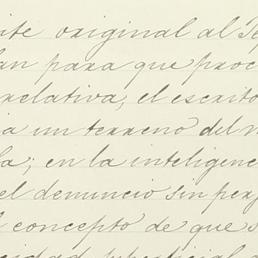 ite original al
an para que proc
relativa, el escrito
a un terreno del
la; en la inteligenc
el denuncio sin per
concepto de que s
superficial